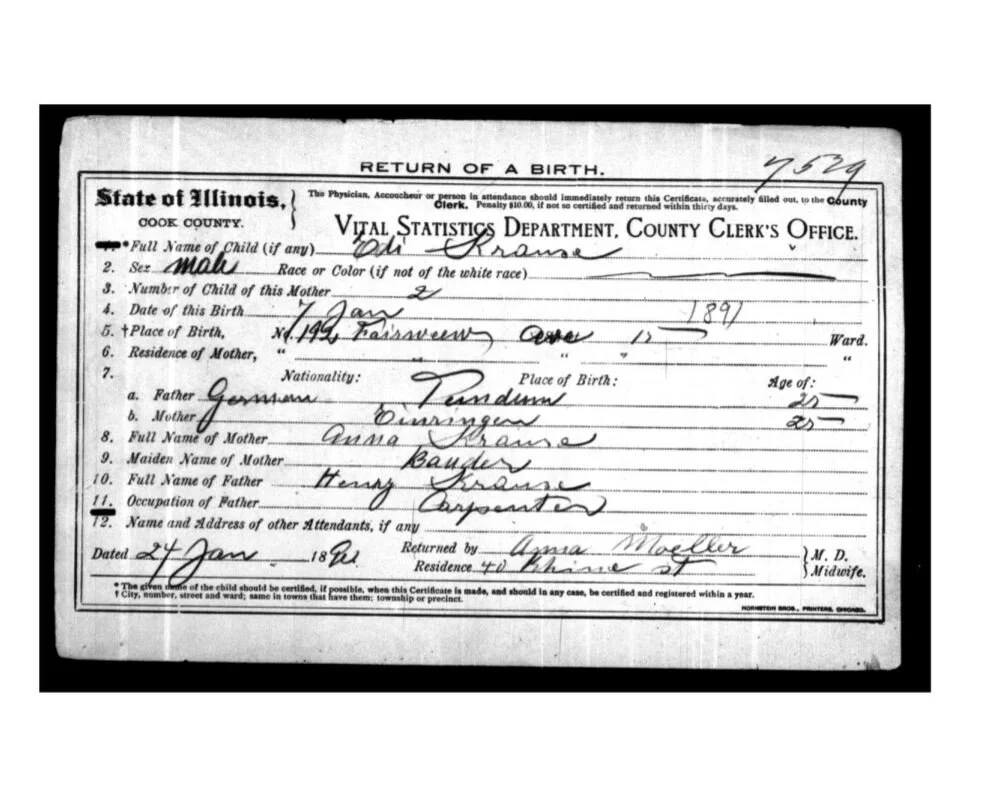 7529
RETURN OF A BIRTH.
State of Illinois,
COOK COUNTY.
The Physician, Accoucheur or person in attendance should immediately return this Certificate, accurately filled out, to the County
Clerk. Penalty $10.00, if not so certified and returned within thirty days.
VITAL STATISTICS DEPARTMENT, COUNTY CLERK'S OFFICE.
1. *Full Name of Child (if any) Edi Krause
2. Sex male Race or Color (if not of the white race)
3. Number of Child of this Mother 2
4. Date of this Birth 7 Jan 1891
5. †Place of Birth, No. 192 Ave 15 Ward.
6. Residence of Mother, " " " " "
7. Nationality: Place of Birth: Age of:
a. Father German 25
b. Mother 25
8. Full Name of Mother Anna Krause
9. Maiden Name of Mother Bauder
10. Full Name of Father Henry Krause
11. Occupation of Father Carpenter
12. Name and Address of other Attendants, if any
Dated 24 Jan 1891 Returned by Anna Moeller M. D.
Residence 40 Rhine st Midwife.
* The given name of the child should be certified, if possible, when this Certificate is made, and should in any case, be certified and registered within a year.
† City, number, street and ward; same in towns that have them; township or precinct.
HORNSTEIN BROS., PRINTERS, CHICAGO.